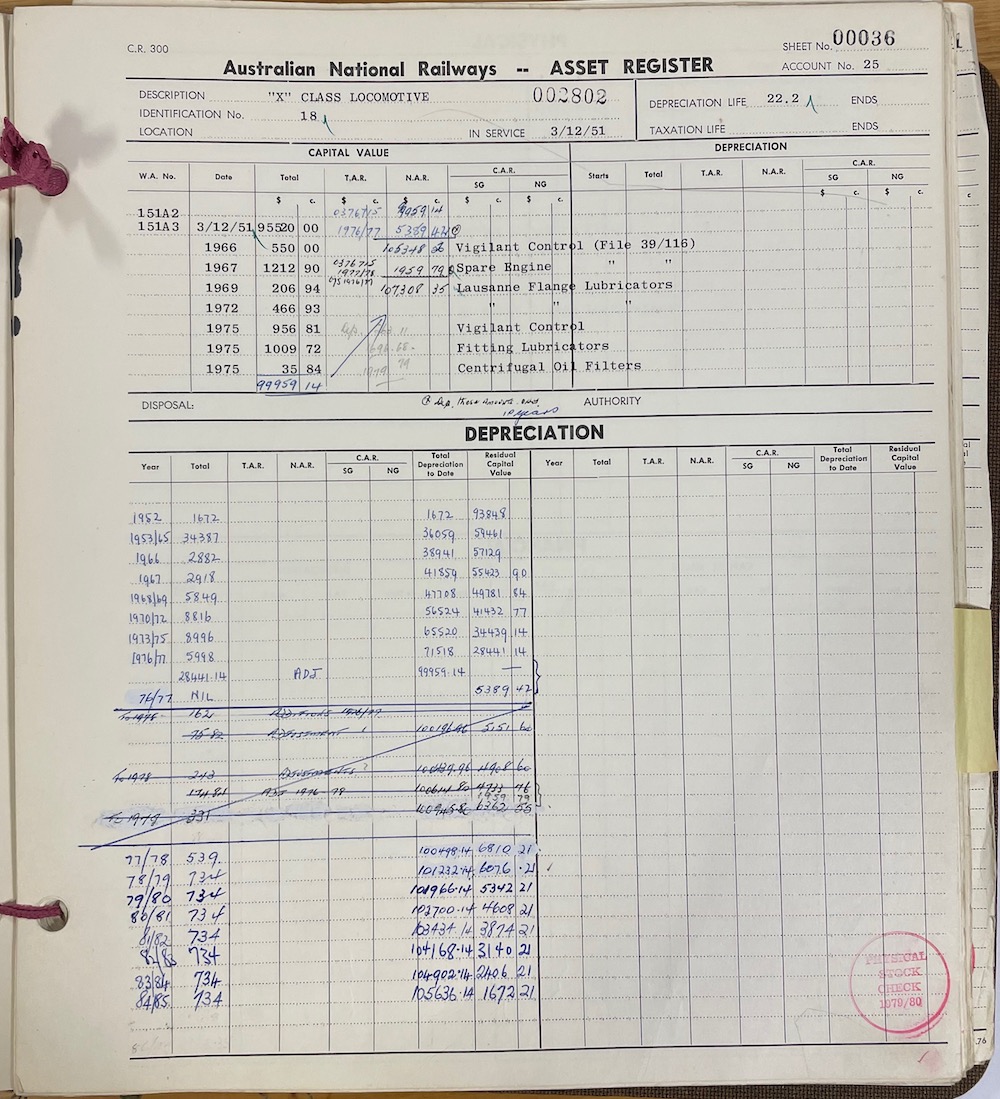 C.R. 300
SHEET No. 00036
Australian National Railways -- ASSET REGISTER
ACCOUNT No. 25
DESCRIPTION "X" CLASS LOCOMOTIVE 002802
IDENTIFICATION No. 18
LOCATION IN SERVICE 3/12/51
DEPRECIATION LIFE 22.2 ENDS
TAXATION LIFE ENDS
CAPITAL VALUE DEPRECIATION
W.A. No. Date Total T.A.R. N.A.R. C.A.R. SG NG Starts Total T.A.R. N.A.R. C.A.R. SG NG
$ c. $ c. $ c. $ c. $ c. $ c.
151A2 0376715 9959 14
151A3 3/12/51 95520 00 1976/77 5389 42
1966 550 00 105348 56 Vigilant Control (File 39/116)
1967 1212 90 0376715 1977/78 1959 79 Spare Engine " "
1969 206 94 107,308 35 Lausanne Flange Lubricators
1972 466 93 " " "
1975 956 81 Vigilant Control
1975 1009 72 Fitting Lubricators
1975 35 84 Centrifugal Oil Filters
99959 14
DISPOSAL: AUTHORITY
years
DEPRECIATION
Year Total T.A.R. N.A.R. C.A.R. SG NG Total Depreciation to Date Residual Capital Value Year Total T.A.R. N.A.R. C.A.R. SG NG Total Depreciation to Date Residual Capital Value
1952 1672 1672 93848
1953/65 34387 36059 59461
1966 2882 38941 57129
1967 2918 41859 55423 90
1968/69 5849 47708 49781 84
1970/72 8816 56524 41432 77
1973/75 8996 65520 34439 14
1976/77 5998 71518 28441 14
28441.14 ADJ 99959.14 —
76/77 NIL 5389 42
To 1978 162 ADDITIONS 1976/77
ADJUSTMENT 5151 60
To 1978 243 ADJUSTMENTS 4908 60
4733 76
1959 79
To 1978 331 6362 55
77/78 539. 100498.14 6810 21
78/79 734 101232.14 6076 .21
79/80 734 101966.14 5342 21
80/81 734 102700.14 4608 21
81/82 734 103434 14 3874 21
82/83 734 104168.14 3140 21
83/84 734 104902.14 2406 21
84/85 734 105636.14 1672 21
PHYSICAL
STOCK
CHECK
1979/80